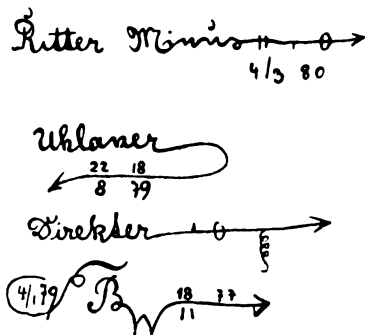 Ritter Minus
4/3 80
Uhlaner
22 18
8 79
Direktor
4/1,79 B 18 77
11